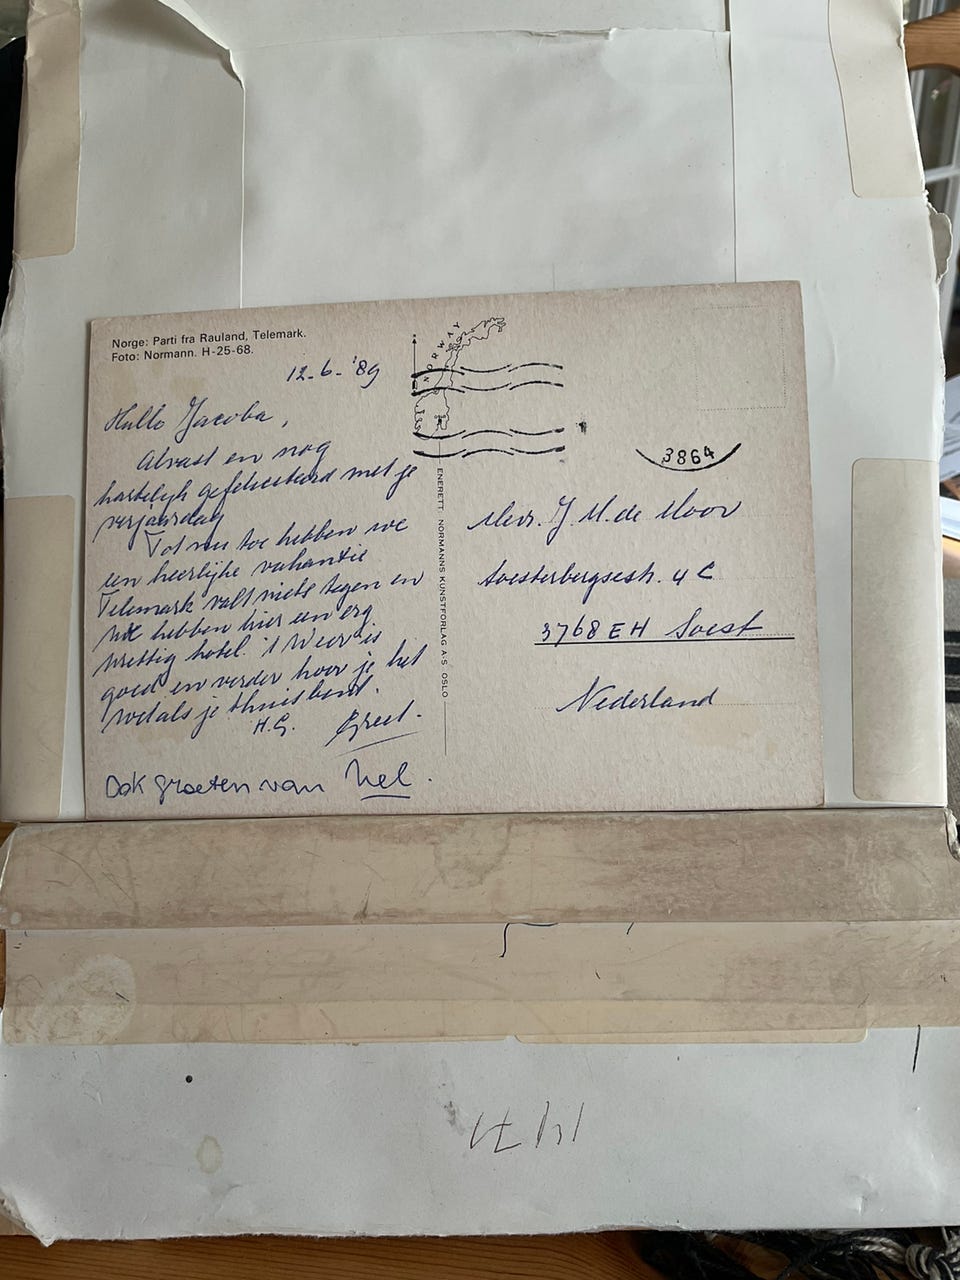 Norge: Parti fra Rauland, Telemark.
Foto: Normann. H-25-68.
12-6-'89
Hallo Jacoba,
Alvast en nog
hartelijk gefeliciteerd met je
verjaardag
Tot nu toe hebben we
een heerlijke vakantie
Telemark valt niets tegen en
we hebben hier een erg
prettig hotel. 't Weer is
goed en verder hoor je het
wel als je thuis bent.
H.G. Greet.
Ook groeten van Nel.
NORWAY
3864
ENERETT: NORMANNS KUNSTFORLAG A-S OSLO
Mevr. J. M. de Moor
Soesterbergsestr. 4 C
3768 EH Soest
Nederland